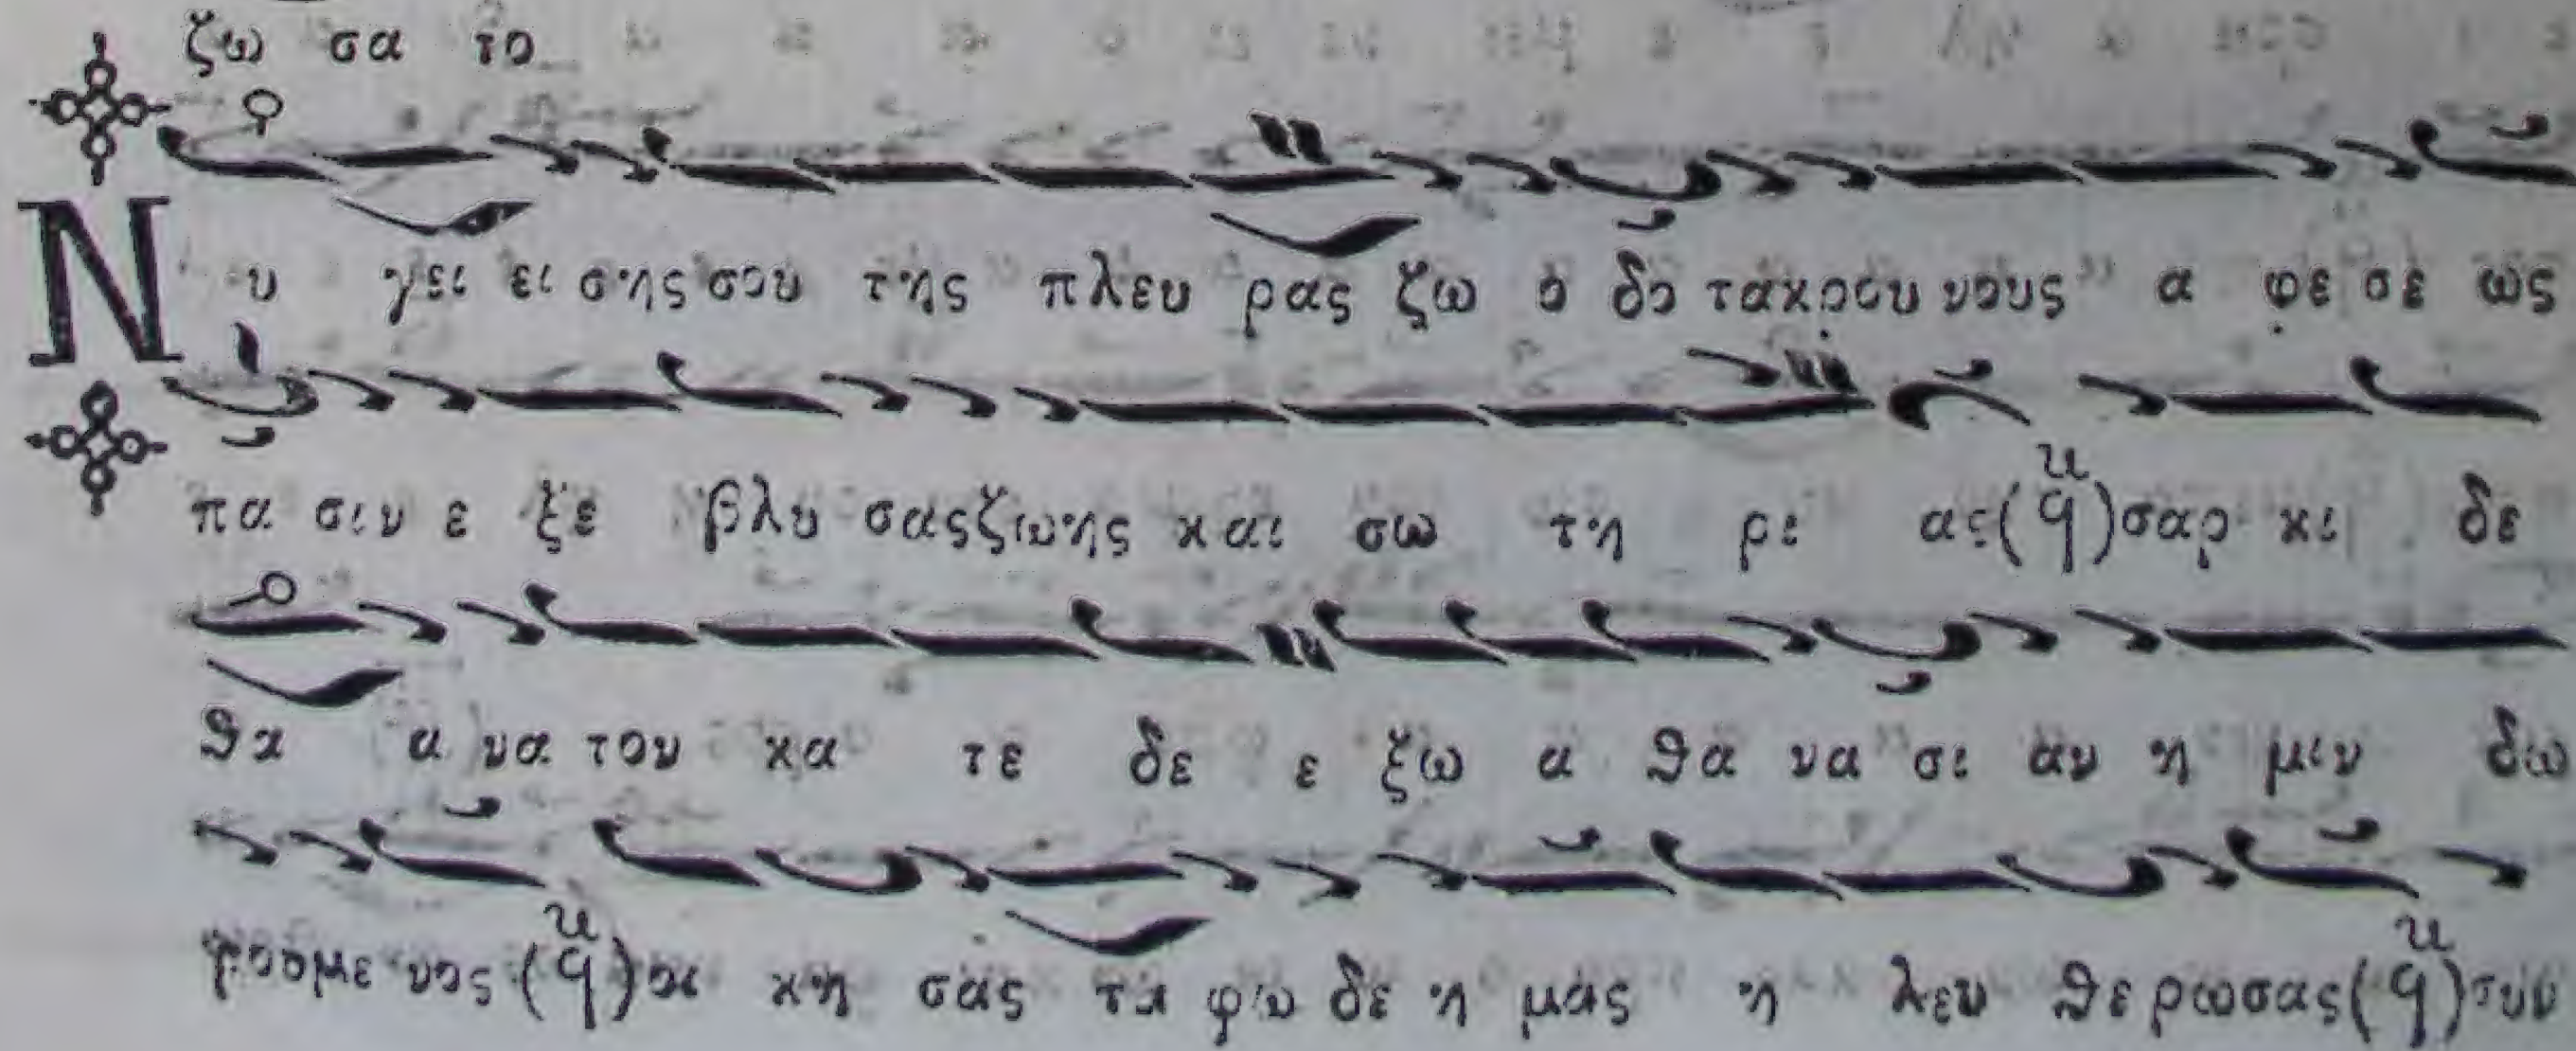 ζω σα το
Ν υ γει ει σης σου της πλευ ρας ζω ο δο τα κρου νους α φε σε ως
πα σιν ε ξε βλυ σας ζωης και σω τη ρι ας (ϥ) σαρ κι δε
θα α να τον κα τε δε ε ξω α θα να σι αν η μιν δω
ρουμε νος (ϥ) οι κη σας τα φω δε η μας η λευ θε ρωσας (ϥ) συν